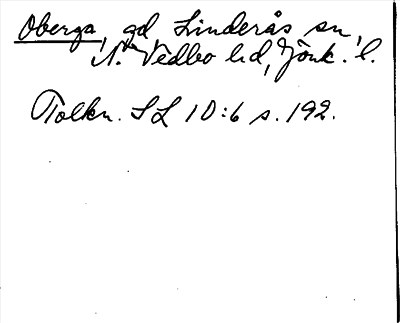 Oberga, gd, Linderås sn,
N. Vedbo hd, Jönk. l.
Tolkn. SL 10:6 s. 192.